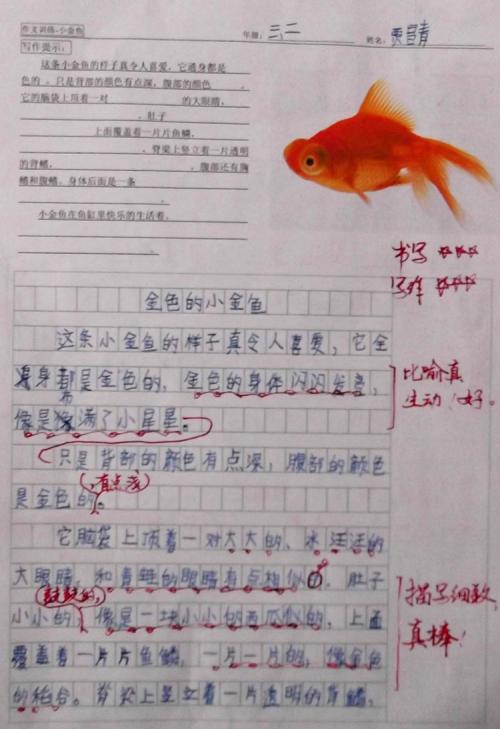 作文训练-小金鱼
年级：三、二 姓名：
写作提示：
这条小金鱼的样子真令人喜爱，它通身都是
色的，只是背部的颜色有点深，腹部的颜色 。
它的脑袋上顶着一对 的大眼睛，
，肚子
上面覆盖着一片片鱼鳞，
，脊梁上竖立着一片透明
的背鳍， ，腹部还有胸
鳍和腹鳍。身体后面是一条
。
小金鱼在鱼缸里快乐的生活着，
。
书写
金色的小金鱼
这条小金鱼的样子真令人喜爱，它全
身都是金色的，金色的身体闪闪发亮，
比喻真
生动！好。
像是布满了小星星。
只是背部的颜色有点深，腹部的颜色
有点浅
是金色的。
它脑袋上顶着一对大大的、水汪汪的
大眼睛，和青蛙的眼睛有点相似，肚子
鼓鼓的，
小小的，像是一块小小的西瓜似的，上面
描写细致，
真棒！
覆盖着一片片鱼鳞，一片一片的，像金色
的。脊梁上竖立着一片透明的背鳍，